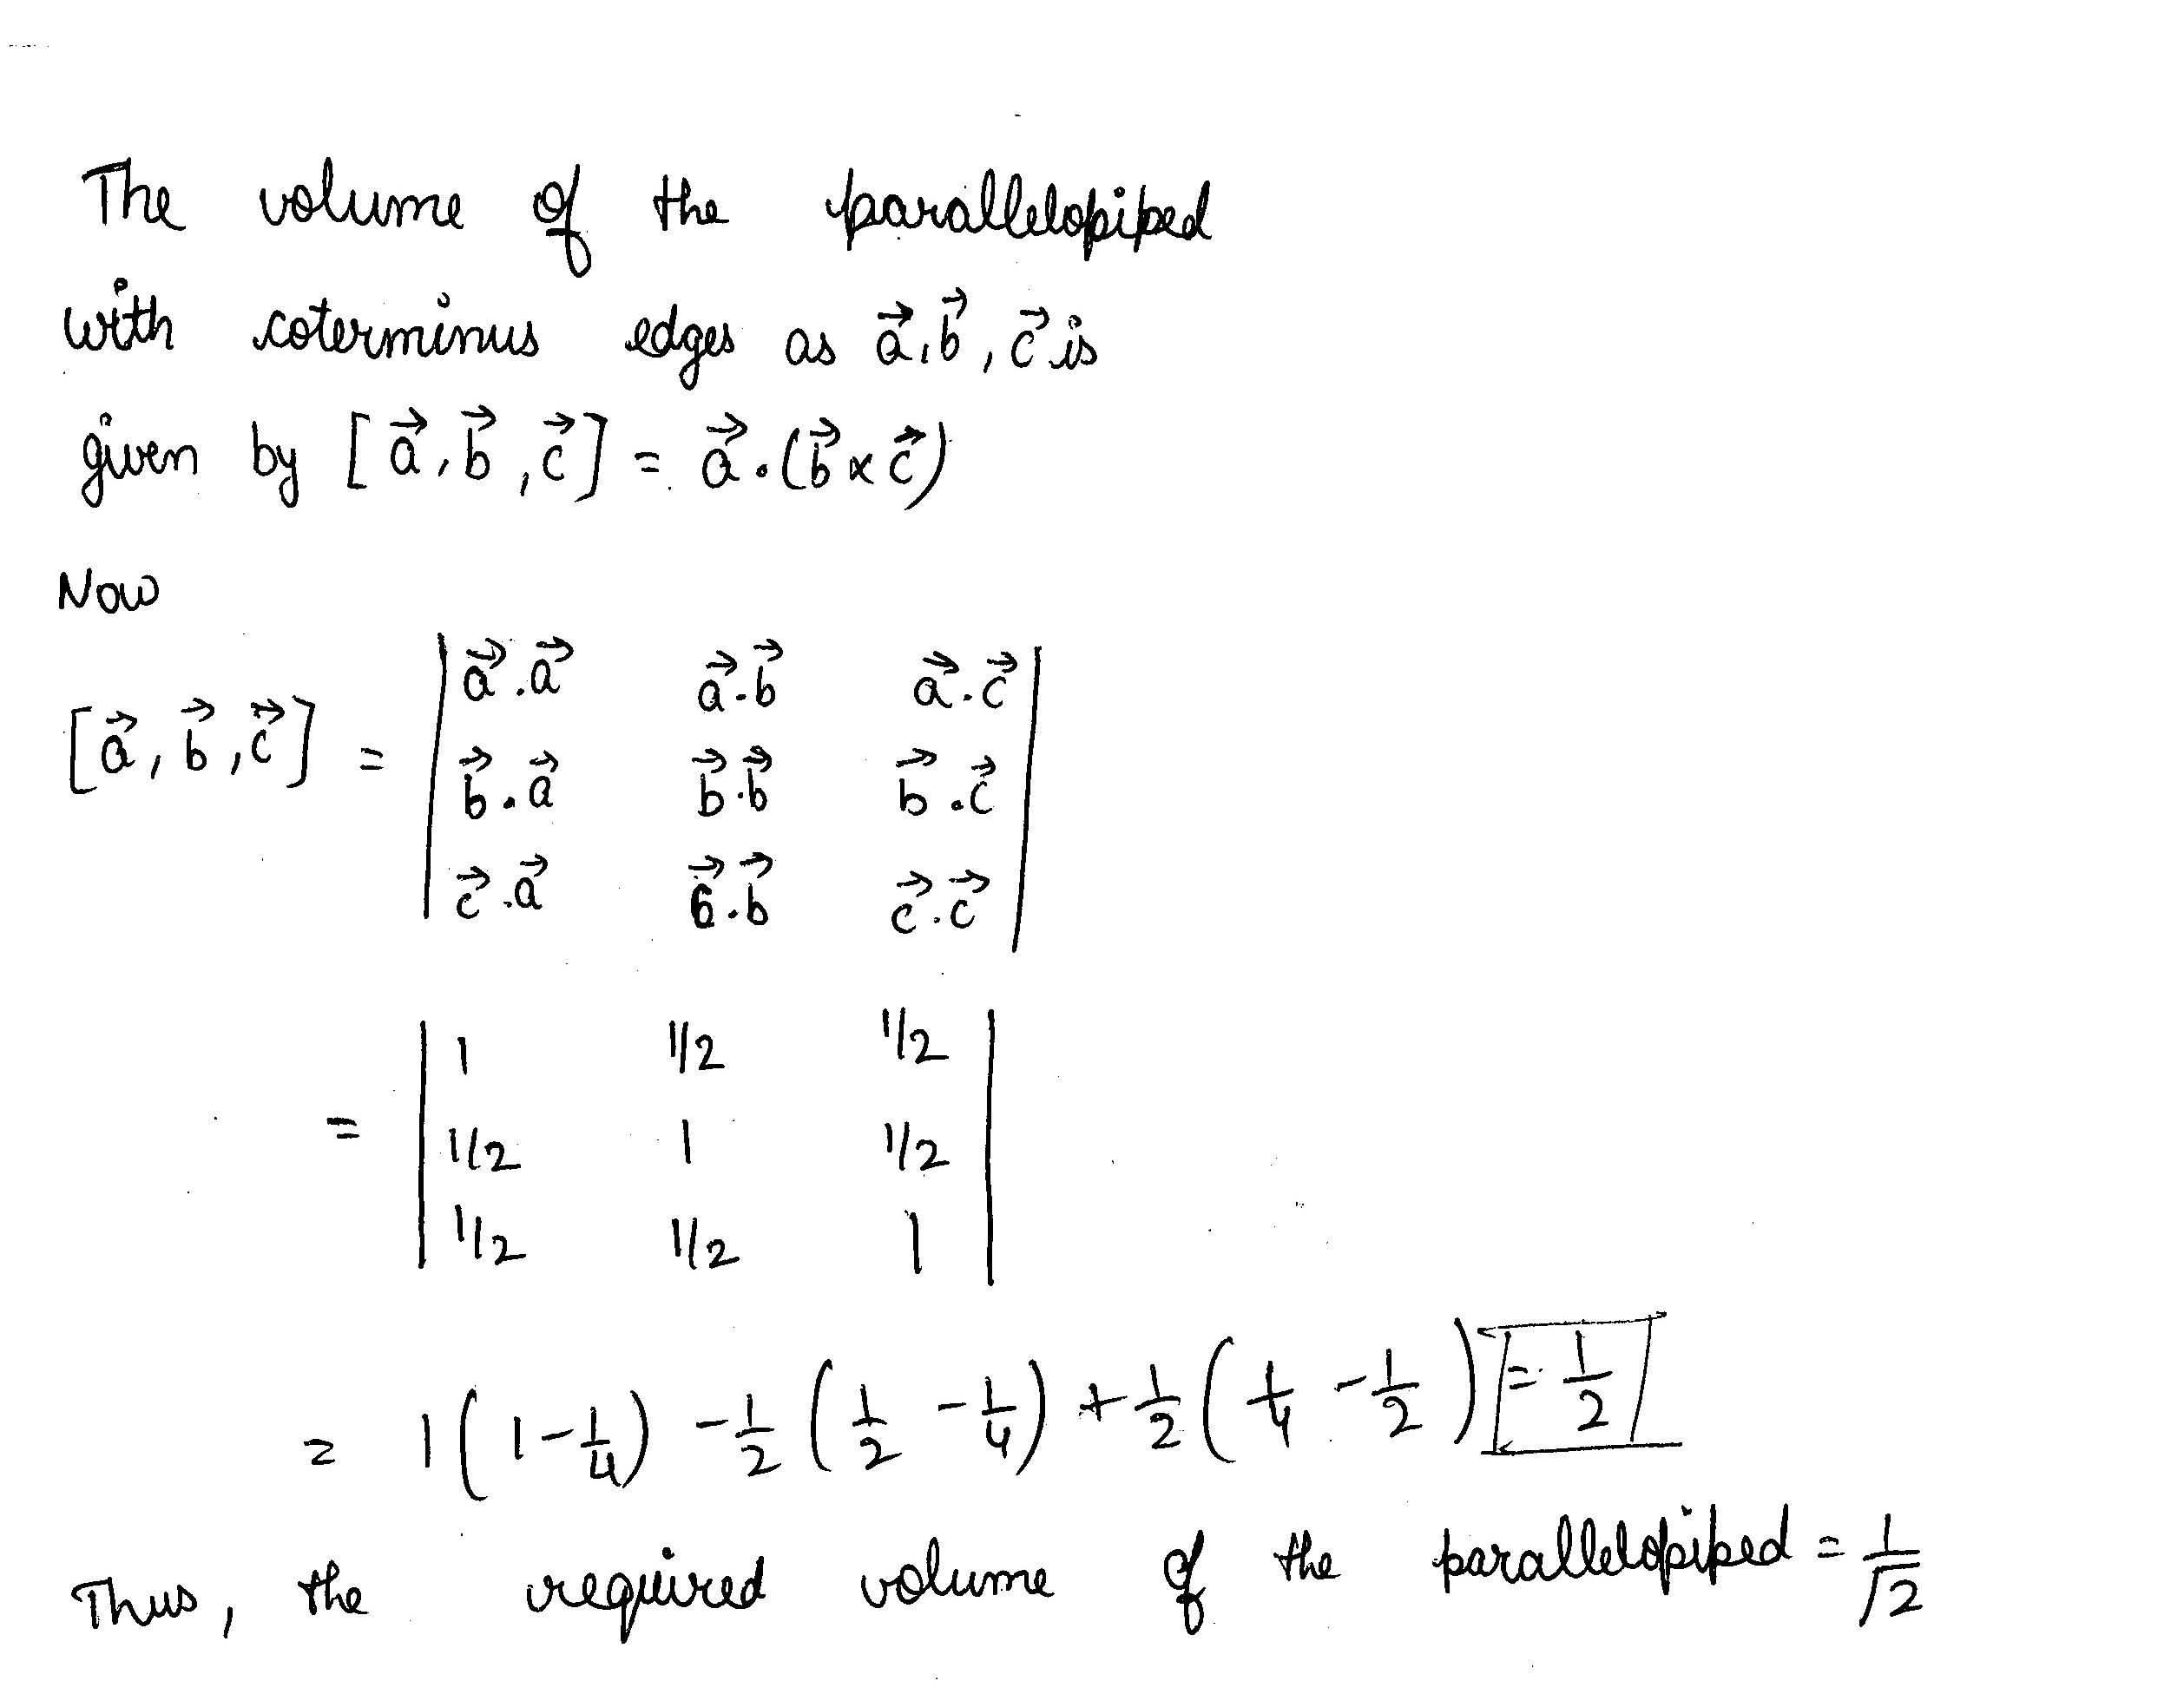 The volume of the parallelopiped
with coterminus edges as a⃗, b⃗, c⃗ is
given by [a⃗, b⃗, c⃗] = a⃗·(b⃗ × c⃗)
Now
[a⃗, b⃗, c⃗] = | a⃗.a⃗ a⃗.b⃗ a⃗.c⃗ |
| b⃗.a⃗ b⃗.b⃗ b⃗.c⃗ |
| c⃗.a⃗ c⃗.b⃗ c⃗.c⃗ |
= | 1 1/2 1/2 |
| 1/2 1 1/2 |
| 1/2 1/2 1 |
= 1(1 - 1/4) - 1/2 (1/2 - 1/4) + 1/2 (1/4 - 1/2) = 1/2
Thus, the required volume of the parallelopiped = 1/√2